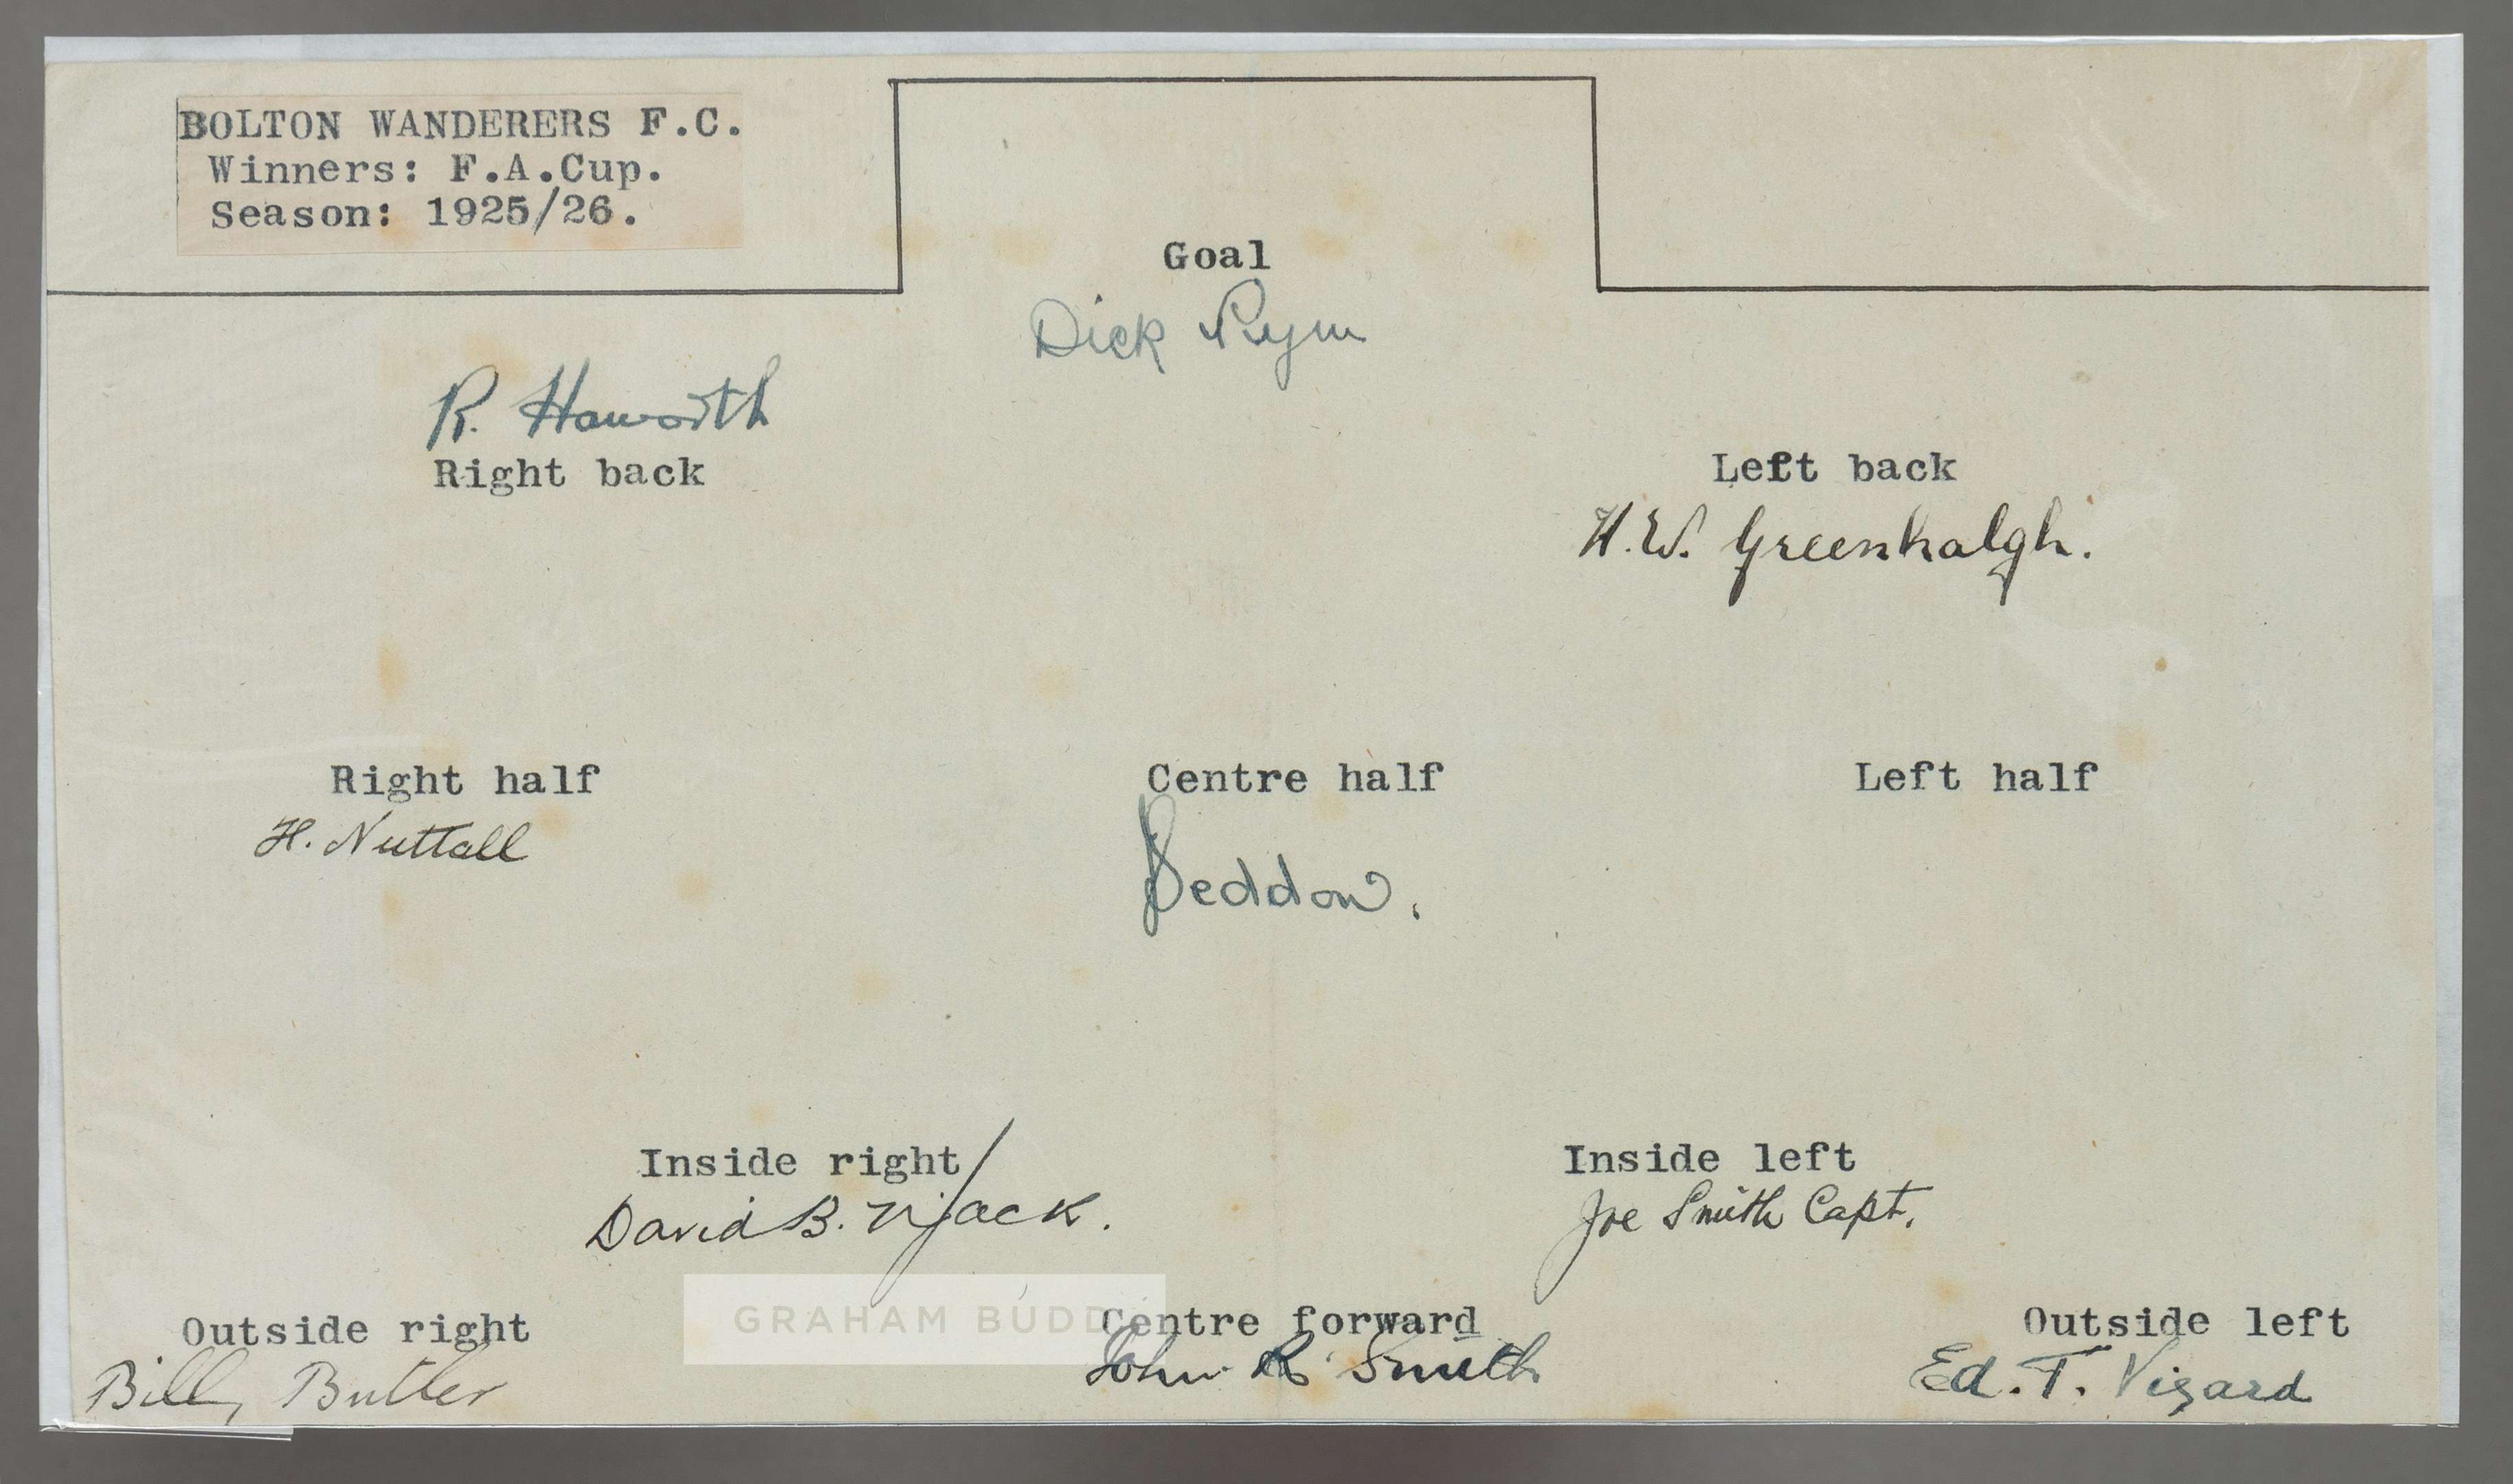 BOLTON WANDERERS F.C.
Winners: F.A.Cup.
Season: 1925/26.
Goal
Dick Pym
R. Haworth
Right back
Left back
H.W. Greenhalgh.
Right half
H. Nuttall
Centre half
Seddon.
Left half
Inside right
David B. N. Jack.
Inside left
Joe Smith Capt.
Outside right
Billy Butler
GRAHAM BUDD
Centre forward
John R Smith
Outside left
Ed. T. Vizard